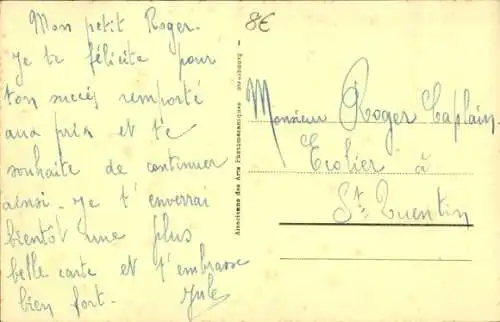 Mon petit Roger.
Je te félicite pour
ton succès remporté
aux prix et te
souhaite de continuer
ainsi. Je t'enverrai
bientôt une plus
belle carte et t'embrasse
bien fort.
Jule
8€
Alsacienne des Arts Photomécaniques Strasbourg
Monsieur Roger Caplain
Ecolier à
St Quentin